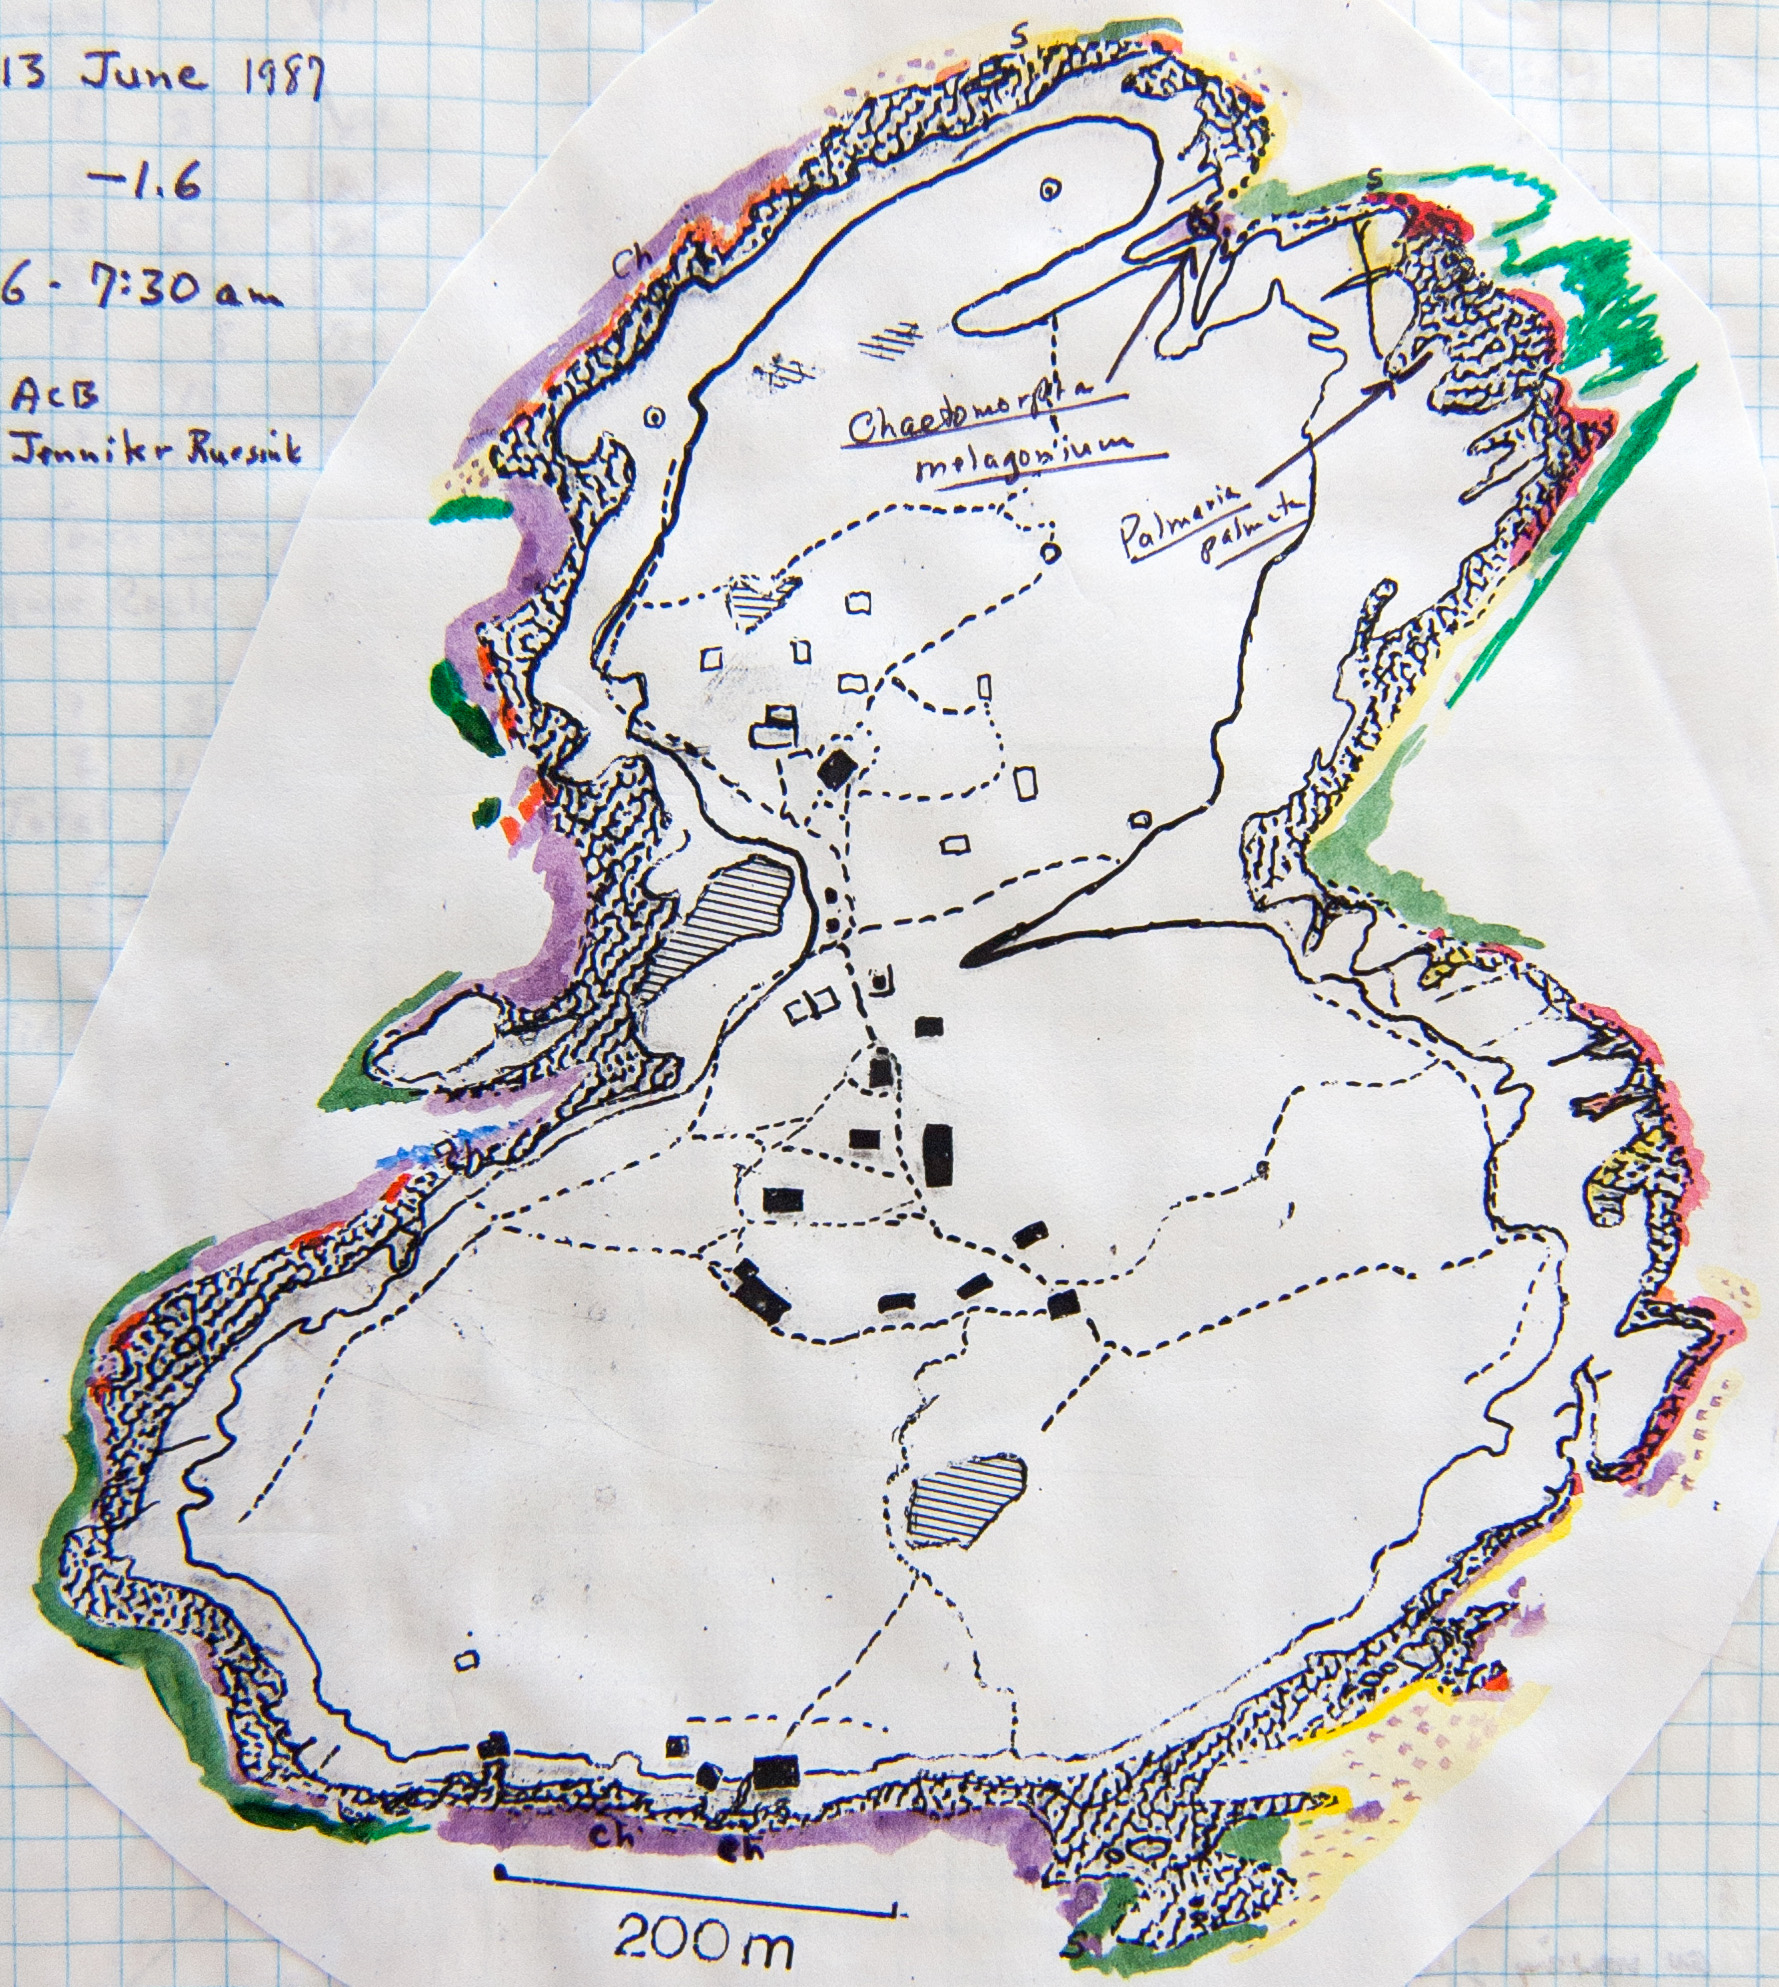 13 June 1987
-1.6
6 - 7:30 am
ACB
Jennifer Ruesink
S
S
Ch
Chaetomorpha
melagonium
Palmaria
palmata
Ch
Ch
Ch
200m
S